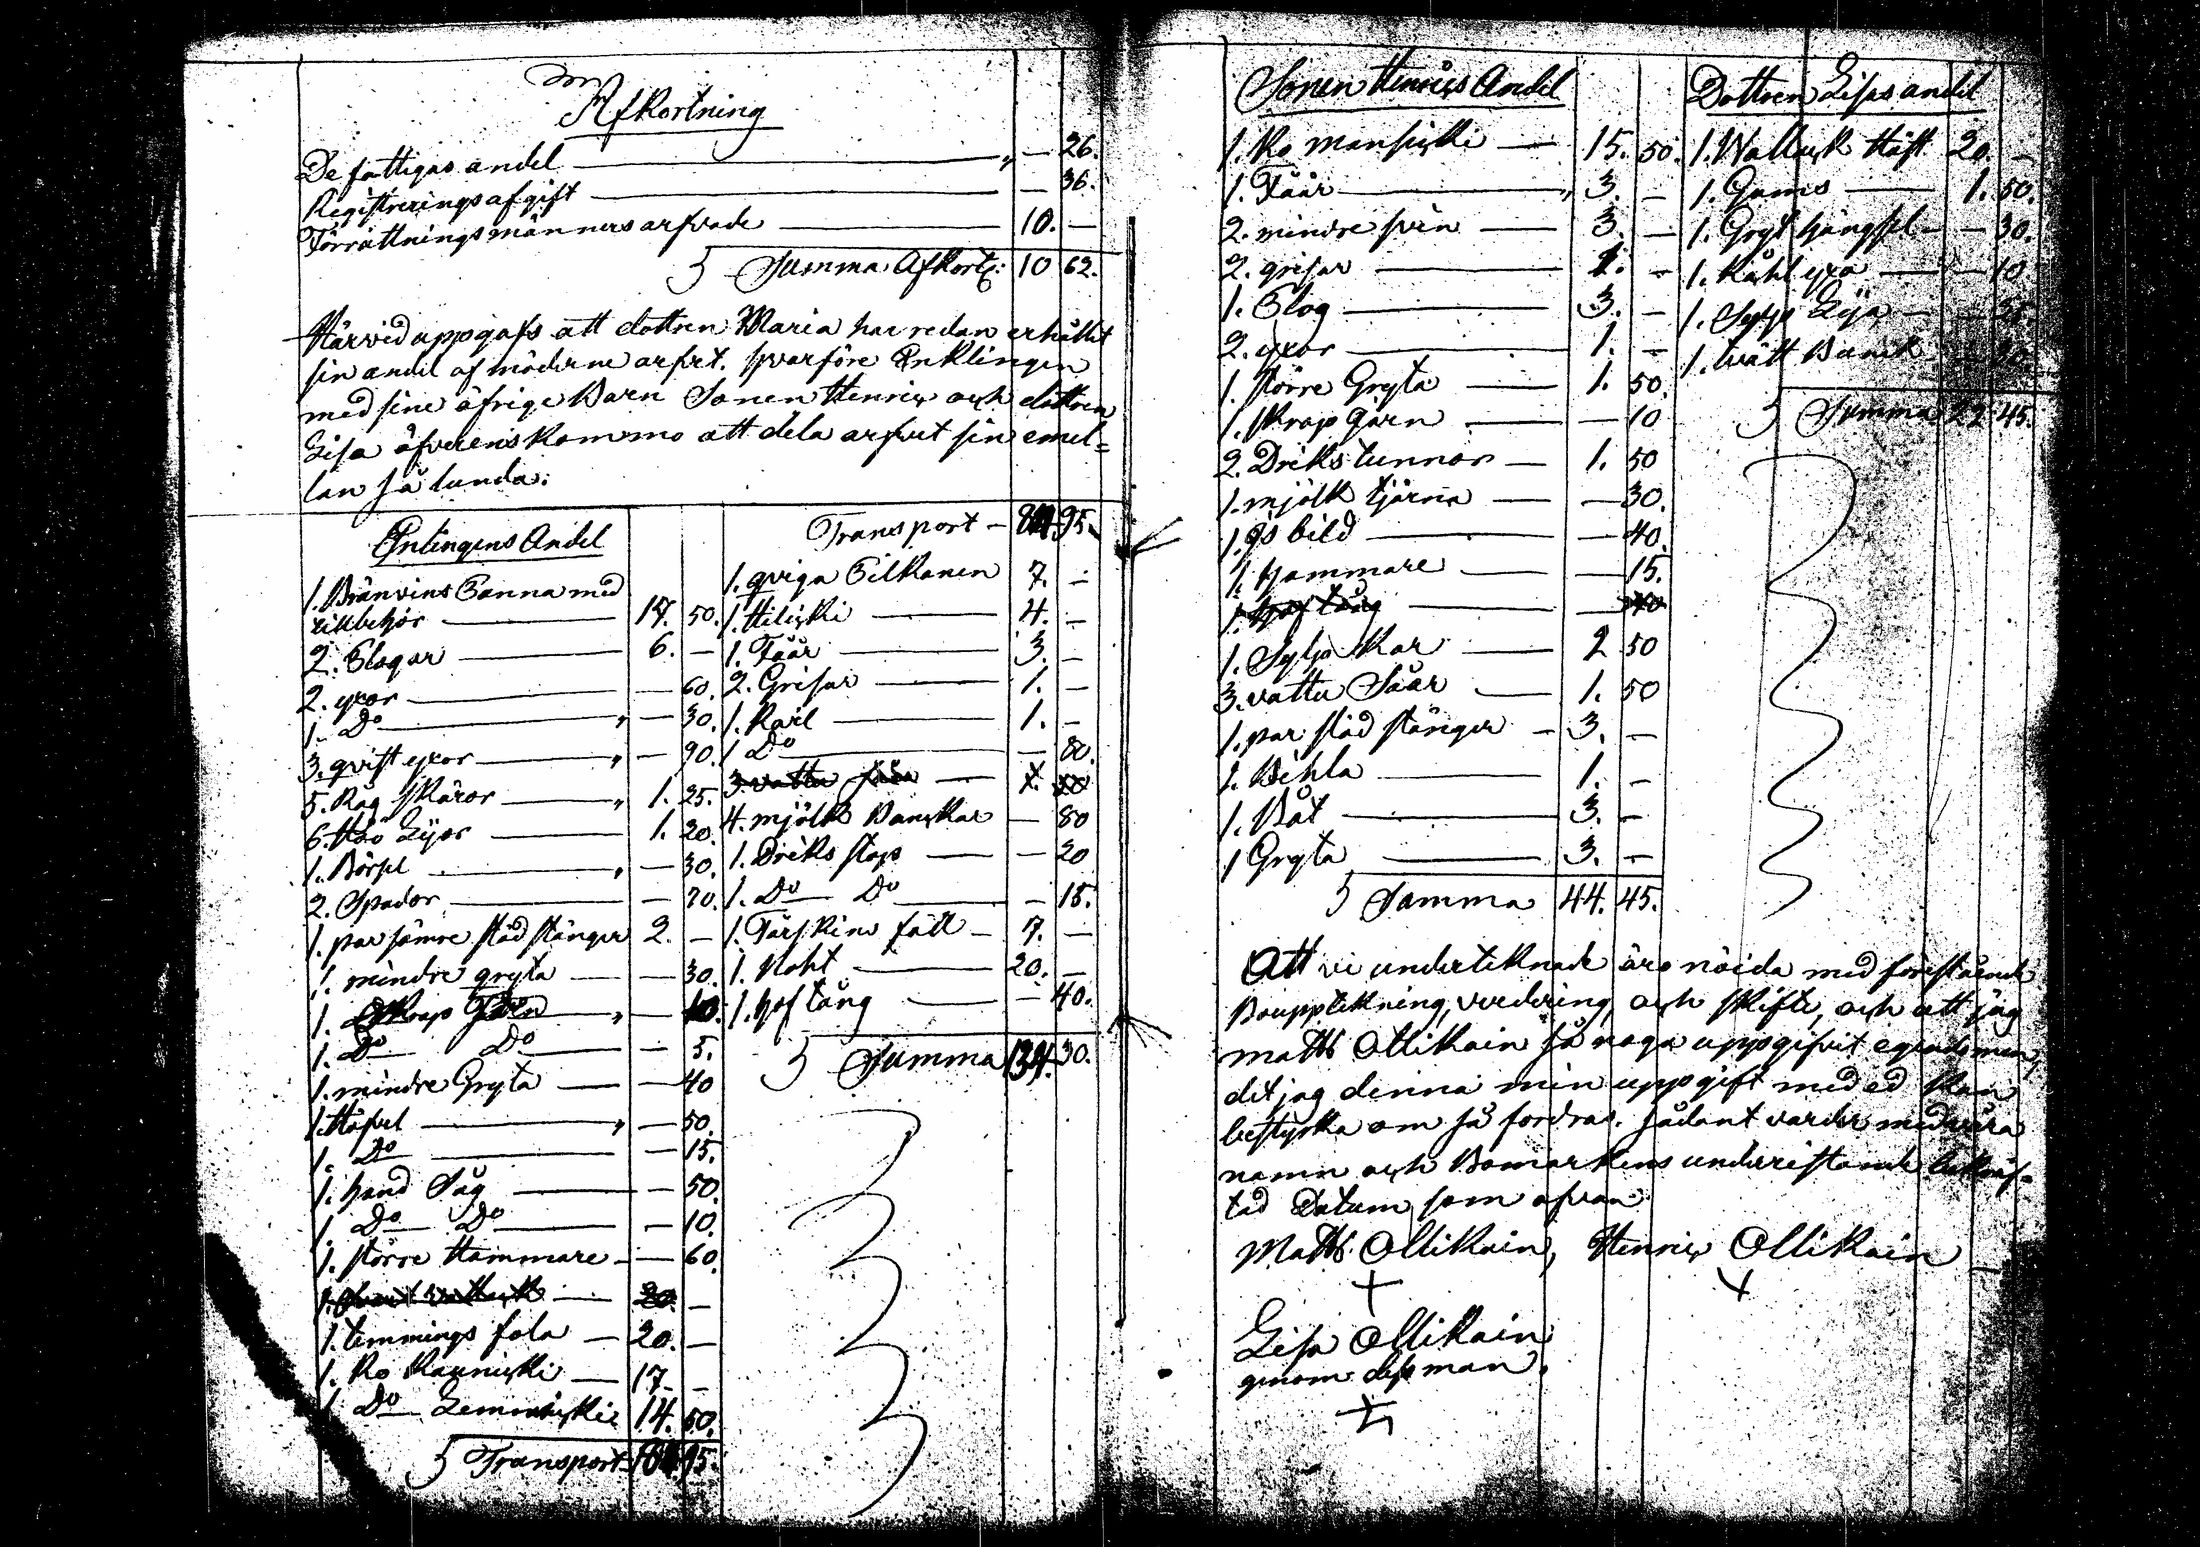 Afkortning
De fattigas andel — — 26.
Registrerings afgift — — 36.
Förrättningsmänners arfvade — 10. —
Summa Afkortg: 10 62.
Härvid uppgafs att dottren Maria har redan erhållit
sin andel af möderne arfvet. hvarföre Enklingen
med sine öfrige Barn Sonen Henric och dottren
Lisa öfverenskommo att dela arfvet sin emel=
lan så lunda:
Enlingens Andel
1. Bränvins Panna med
tillbehör — 17. 50.
2. Plogar — 6. —
2. yxor — — 60.
1. Do — — 30.
3. qvist yxor — — 90.
5. Råg skäror — 1. 25.
6. Höö Lijor — 1. 20.
1. Börsel — — 30.
2. Spador — — 70.
1. par sämre städ stänger 2. —
1. mindre gryta — — 30.
1. Skrap Järn — — 10.
1. Do Do — — 5.
1. mindre Gryta — — 40
1. Häfvel — — 50.
1. Do — — 15.
1. hand Såg — — 50.
1. Do Do — — 10.
1. större Hammare — — 60.
1. Vallack — 20. —
1. temmings fola — 20. —
1. Ko Kauniki — 17. —
1. Do — 14. 50.
Transport 95.
Transport — 95.
1. qviga Pilkanen 7. —
1. Hiliki — 4. —
1. Fåår — 3. —
2. Grisar — 1. —
1. Karl — 1. —
1 Do — — 80.
3. vattu såar
4. mjölk Bunkar — 80
1. Driks stop — — 20
1. Do Do — — 15.
1. Fårskins fäll — 7. —
1. Noht — 20. —
1. hof tång — — 40.
Summa 134. 30.
Sonen Henrics Andel
1. Ko mansicki — 15. 50.
1. Fåår — 3. —
2. mindre svin — 3. —
2. grisar — 1. —
1. Plog — 3. —
2. yxor — 1. —
1. större Gryta — 1. 50.
1. skrap järn — — 10
2. Driks tunnor — 1. 50
1. mjölk tjärna — — 30.
1. Js bild — — 40.
1. hammare — — 15.
1. hof tång — — 40
1. Sylt kar — 2 50
3. vattu Såar — 1. 50
1. par städ stänger — 3. —
1. Kihla — 1. —
1. Båt — 3. —
1 Gryta — 3. —
Summa 44. 45.
Dottren Lisas andel
1. Vallack Häst 20. —
1. Gums — 1. 50.
1. Gryt hängsel — — 30.
1. Kåhl yxa — — 10
1. Lija — —
1. tvätt Bunk —
Summa 22 45.
Att vi undertecknade äro nöida med förestående
Bouppteckning, vurdering, och skifte, och att jag
Matts Ollikain så noga uppgifvit egendomen,
det jag denna min uppgift med ed kan
bestyrka om så fordras. sådant varder med våra
namn och Bomärkens undersättande bekräf-
tad Datum som ofvan
Matts Ollikain, Henric Ollikain
Lisa Ollikain
genom dess man.